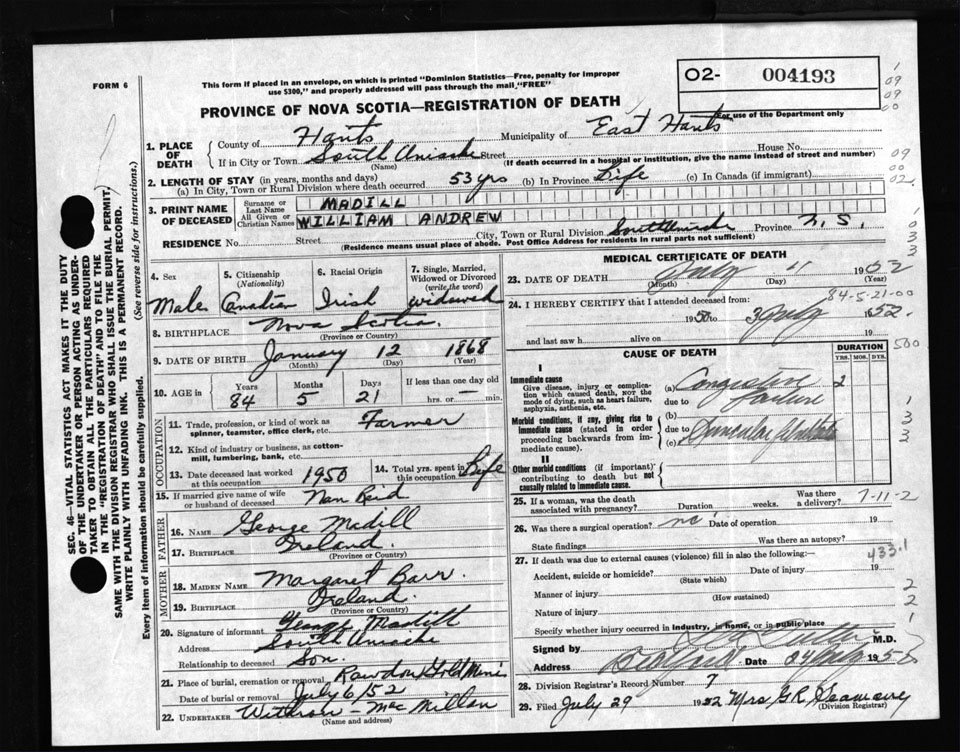 FORM 6
This form if placed in an envelope, on which is printed "Dominion Statistics—Free, penalty for improper
use $300," and properly addressed will pass through the mail "FREE"
O2- 004193
For use of the Department only
PROVINCE OF NOVA SCOTIA—REGISTRATION OF DEATH
1. PLACE OF DEATH
County of Hants Municipality of East Hants
If in City or Town South Street House No.
(Name) (If death occurred in a hospital or institution, give the name instead of street and number)
2. LENGTH OF STAY (in years, months and days)
(a) In City, Town or Rural Division where death occurred 53 yrs (b) In Province Life (c) In Canada (if immigrant)
3. PRINT NAME OF DECEASED
Surname or Last Name MADILL
All Given or Christian Names WILLIAM ANDREW
RESIDENCE No. Street City, Town or Rural Division South Province N.S.
(Residence means usual place of abode. Post Office Address for residents in rural parts not sufficient)
4. Sex Male
5. Citizenship (Nationality) Canadian
6. Racial Origin Irish
7. Single, Married, Widowed or Divorced (write the word) widowed
8. BIRTHPLACE Nova Scotia.
(Province or Country)
9. DATE OF BIRTH January 12 1868
(Month) (Day) (Year)
10. AGE in Years 84 Months 5 Days 21 If less than one day old
hrs. or min.
OCCUPATION
11. Trade, profession, or kind of work as spinner, teamster, office clerk, etc. Farmer
12. Kind of industry or business, as cotton-mill, lumbering, bank, etc.
13. Date deceased last worked at this occupation 1950
14. Total yrs. spent in this occupation Life
15. If married give name of wife or husband of deceased Nan Reid
FATHER
16. NAME George Madill
17. BIRTHPLACE Ireland.
(Province or Country)
MOTHER
18. MAIDEN NAME Margaret Barr.
19. BIRTHPLACE Ireland.
(Province or Country)
20. Signature of informant George Madill
Address South
Relationship to deceased Son.
21. Place of burial, cremation or removal Rawdon Gold Mines
Date of burial or removal July 6/52
22. UNDERTAKER Withrow - MacMillan
(Name and address)
MEDICAL CERTIFICATE OF DEATH
23. DATE OF DEATH July 19 52
(Month) (Day) (Year)
84-5-21-00
24. I HEREBY CERTIFY that I attended deceased from:
19 50 to 3 July 1952.
and last saw h alive on 19
CAUSE OF DEATH
DURATION
YRS. MOS. DYS.
I
Immediate cause
Give disease, injury or complication which caused death, NOT the mode of dying, such as heart failure, asphyxia, asthenia, etc.
(a) Congestive failure 2
due to
Morbid conditions, if any, giving rise to immediate cause (stated in order proceeding backwards from immediate cause).
(b)
due to
(c)
II
Other morbid conditions (if important) contributing to death but not causally related to immediate cause.
25. If a woman, was the death associated with pregnancy? Duration weeks. Was there a delivery?
7-11-2
26. Was there a surgical operation? no Date of operation 19
State findings Was there an autopsy?
27. If death was due to external causes (violence) fill in also the following:—
433.1
Accident, suicide or homicide? Date of injury 19
(State which)
Manner of injury
(How sustained)
Nature of injury
Specify whether injury occurred in industry, in home, or in public place
Signed by M.D.
Address Date 24 July 195
28. Division Registrar's Record Number 7
29. Filed July 29 1952 Mrs G R Seamone
(Division Registrar)
SEC. 46—VITAL STATISTICS ACT MAKES IT THE DUTY
OF THE UNDERTAKER OR PERSON ACTING AS UNDER-
TAKER TO OBTAIN ALL THE PARTICULARS REQUIRED
IN THE "REGISTRATION OF DEATH" AND TO FILE THE
SAME WITH THE DIVISION REGISTRAR WHO SHALL ISSUE THE BURIAL PERMIT.
WRITE PLAINLY WITH UNFADING INK. THIS IS A PERMANENT RECORD.
Every item of information should be carefully supplied. (See reverse side for instructions.)